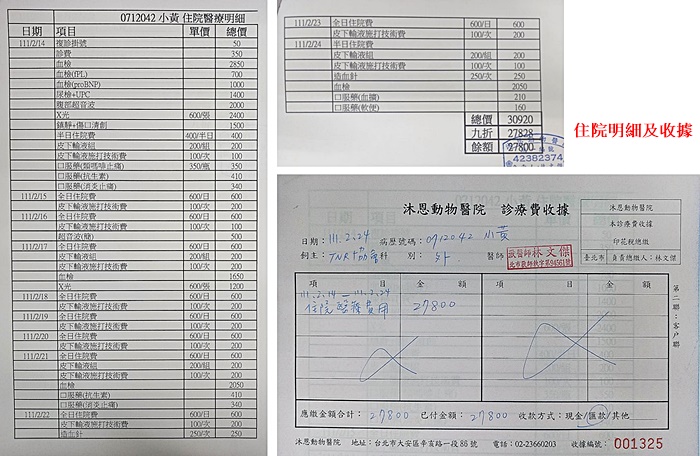 0712042 小黃 住院醫療明細
日期 項目 單價 總價
111/2/14 複診掛號 50
診費 350
血檢 2850
血檢(fPL) 700
血檢(proBNP) 1000
尿檢+UPC 1400
腹部超音波 2000
X光 600/張 2400
鎮靜+傷口清創 1500
半日住院費 400/半日 400
皮下輸液組 200/組 200
皮下輸液施打技術費 100/次 100
口服藥(類嗎啡止痛) 350/瓶 350
口服藥(抗生素) 410
口服藥(消炎止痛) 340
111/2/15 全日住院費 600/日 600
皮下輸液施打技術費 100/次 200
111/2/16 全日住院費 600/日 600
皮下輸液施打技術費 100/次 200
超音波(簡) 500
111/2/17 全日住院費 600/日 600
皮下輸液組 200/組 200
皮下輸液施打技術費 100/次 200
血檢 1650
X光 600/張 1200
111/2/18 全日住院費 600/日 600
皮下輸液施打技術費 100/次 200
111/2/19 全日住院費 600/日 600
皮下輸液施打技術費 100/次 200
111/2/20 全日住院費 600/日 600
皮下輸液施打技術費 100/次 200
111/2/21 全日住院費 600/日 600
皮下輸液組 200/組 200
皮下輸液施打技術費 100/次 200
血檢 2050
口服藥(抗生素) 410
口服藥(消炎止痛) 340
111/2/22 全日住院費 600/日 600
皮下輸液施打技術費 100/次 200
造血針 250/次 250
111/2/23 全日住院費 600/日 600
皮下輸液施打技術費 100/次 200
111/2/24 半日住院費
皮下輸液組 200/組 200
皮下輸液施打技術費 100/次 100
造血針 250/次 250
血檢 2050
口服藥(血擴) 210
口服藥(軟便) 160
總價 30920
九折 27828
餘額 27800
42382374
住院明細及收據
沐恩動物醫院 診療費收據
沐恩動物醫院
本診療費收據
印花稅總繳
臺北市 負責總繳人:林文傑
日期:111.2.24 病歷號碼:0712042 小黃
飼主:TNR協會 科別:外 醫師
獸醫師林文傑
項目 金額 項目 金額
111.2.14—111.2.24
住院醫療費用 27800
第二聯:客戶聯
應繳金額合計:27800 已付金額:27800 收款方式:現金/匯款/其他
沐恩動物醫院 地址:台北市大安區辛亥路一段86號 電話:02-23660203 收據編號:001325